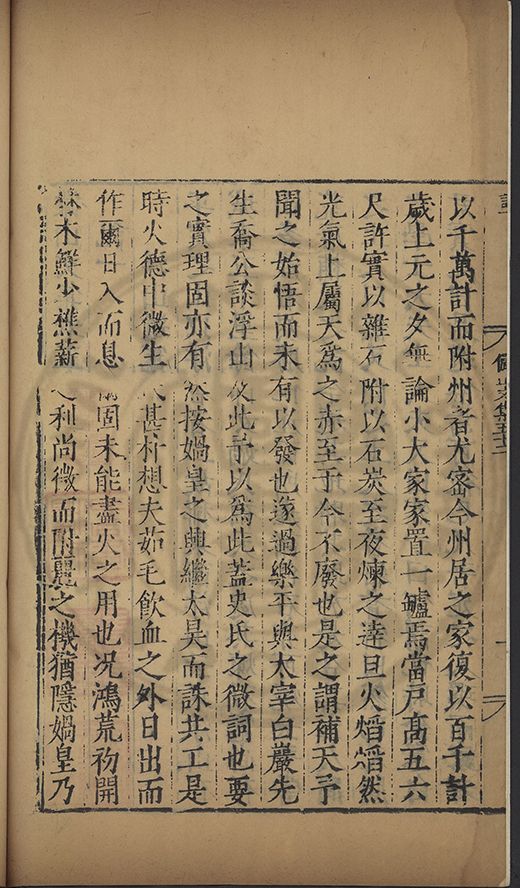 以千萬計而附州者尤密今州居之家復以百千計
歲上元之夕無論小大家家置一鑪焉當戶高五六
尺許實以雜石附以石炭至夜煉之達旦火熖熖然
光氣上屬天爲之赤至于今不廢也是之謂補天予
聞之始悟而未有以發也遂過樂平與太宰白巖先
生喬公談浮山及此予以爲此蓋史氏之微詞也要
之實理固亦有然按媧皇之興繼太昊而誅共工是
時火德中微生民甚朴想夫茹毛飲血之外日出而
作爾日入而息爾固未能盡火之用也況鴻荒初開
木鮮少樵薪之利尚微而附麗之機猶隱媧皇乃